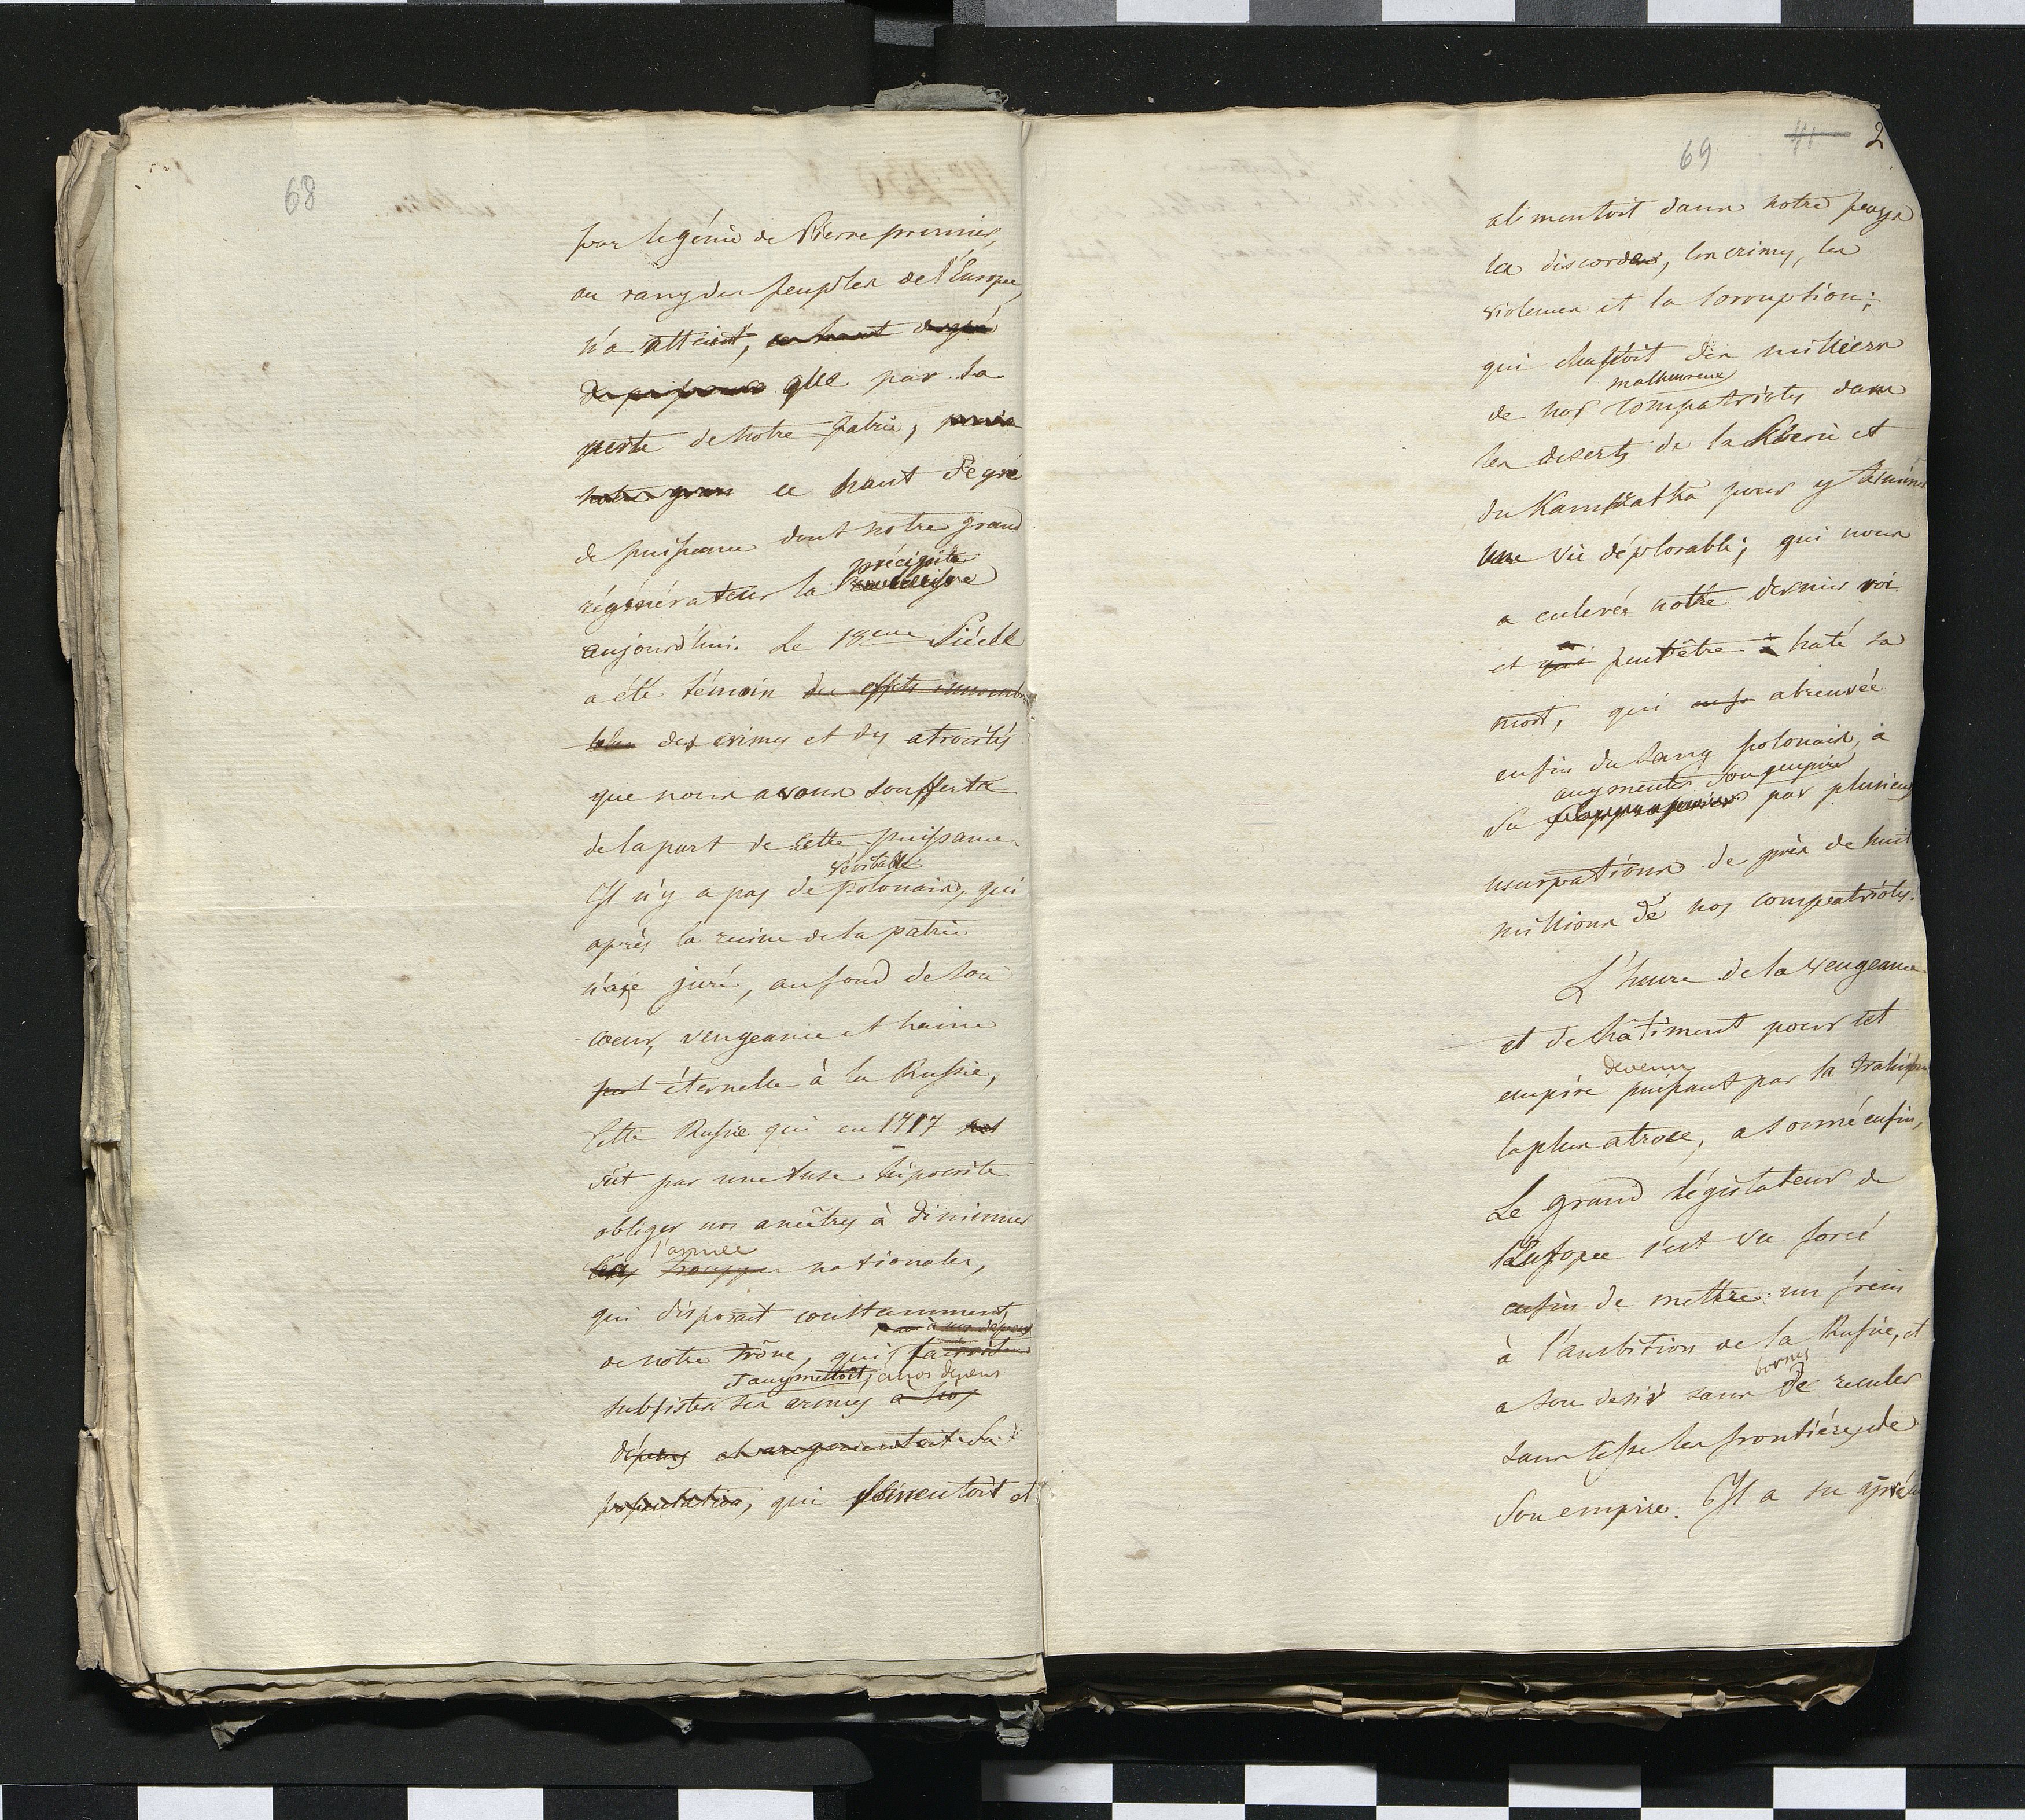 68
par le génie de Pierre premier,
au rang des peuples de l'Europe,
n'a atteint, ce haut degré
que par la
perte de notre patrie, mais
notre gran ce haut degré
de puissance dont notre grand
précipite
régénérateur la
aujourd'hui. Le 18eme Siécle
a été témoin des effets innombra
bles des crimes et des atrocités
que nous avons soufferts
de la part de cette puissance.
véritable
Il n'y a pas de polonais, qui
après la ruine de la patrie
n'aye juré, au fond de son
coeur, vengeance et haine
éternelle à la Russie,
Cette Russie qui en 1717
sût par une ruse hipocrite
obliger nos ancêtres à diminuer
l'armée
les trouppes nationales,
qui disposait constamment
à nos dépens
de notre trône, qui faisoit
et augmentoit, à nos depens
subsister ses armées à nos
dépens et augmentoit sa
population, qui fomentoit et
69 41 2
alimentoit dans notre pays
les discordes, les crimes, les
violences et la corruption;
qui chassoit des milliers
malheureux
de nos compatriotes dans
les deserts de la Siberie et
du Kamtzatka pour y terminer
une vie déplorable; qui nous
a enlevés notre dernier roi
a
et qui peutêtre a haté sa
mort, qui abreuvée
enfin du sang polonais, à
augmenter son empire
su par plusieurs
usurpations de près de huit
millions de nos compatriotes.
L'heure de la vengeance
et de châtiment pour cet
devenu
empire puissant par la trahison
la plus atroce, a sonné enfin,
Le grand législateur de
l'Europe s'est vu forcé
enfin de mettre un frein
à l'ambition de la Russie, et
bornes
a son desir sans de reculer
sans cesse les frontiéres de
Son empire. Il a su